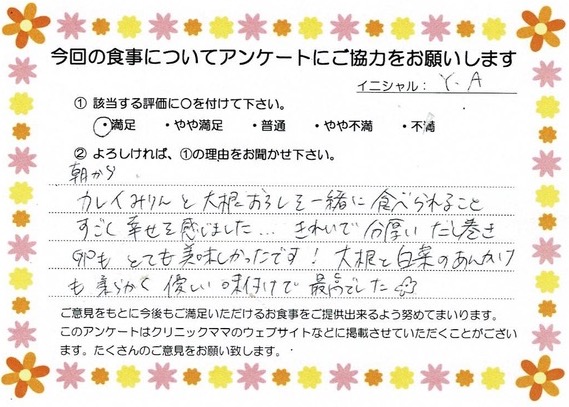 今回の食事についてアンケートにご協力をお願いします
イニシャル: Y.A
① 該当する評価に○を付けて下さい。
・満足 ・やや満足 ・普通 ・やや不満 ・不満
② よろしければ、①の理由をお聞かせ下さい。
朝から
カレイみりんと大根おろしを一緒に食べられること
すごく幸せを感じました… きれいで分厚いだし巻き
卵もとても美味しかったです！大根と白菜のあんかけ
も柔らかく優しい味付けで最高でした
ご意見をもとに今後もご満足いただけるお食事をご提供出来るよう努めてまいります。
このアンケートはクリニックママのウェブサイトなどに掲載させていただくことがござい
ます。たくさんのご意見をお願い致します。